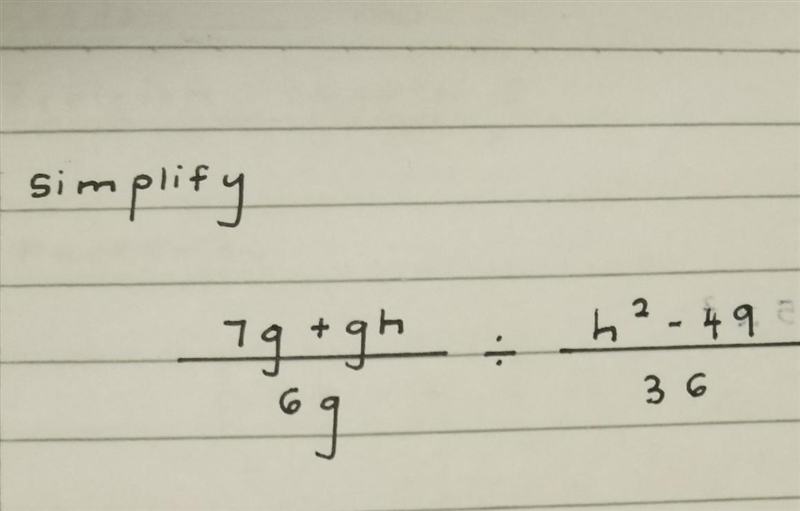 simplify
7g + gh / 6g ÷ h² - 49 / 36